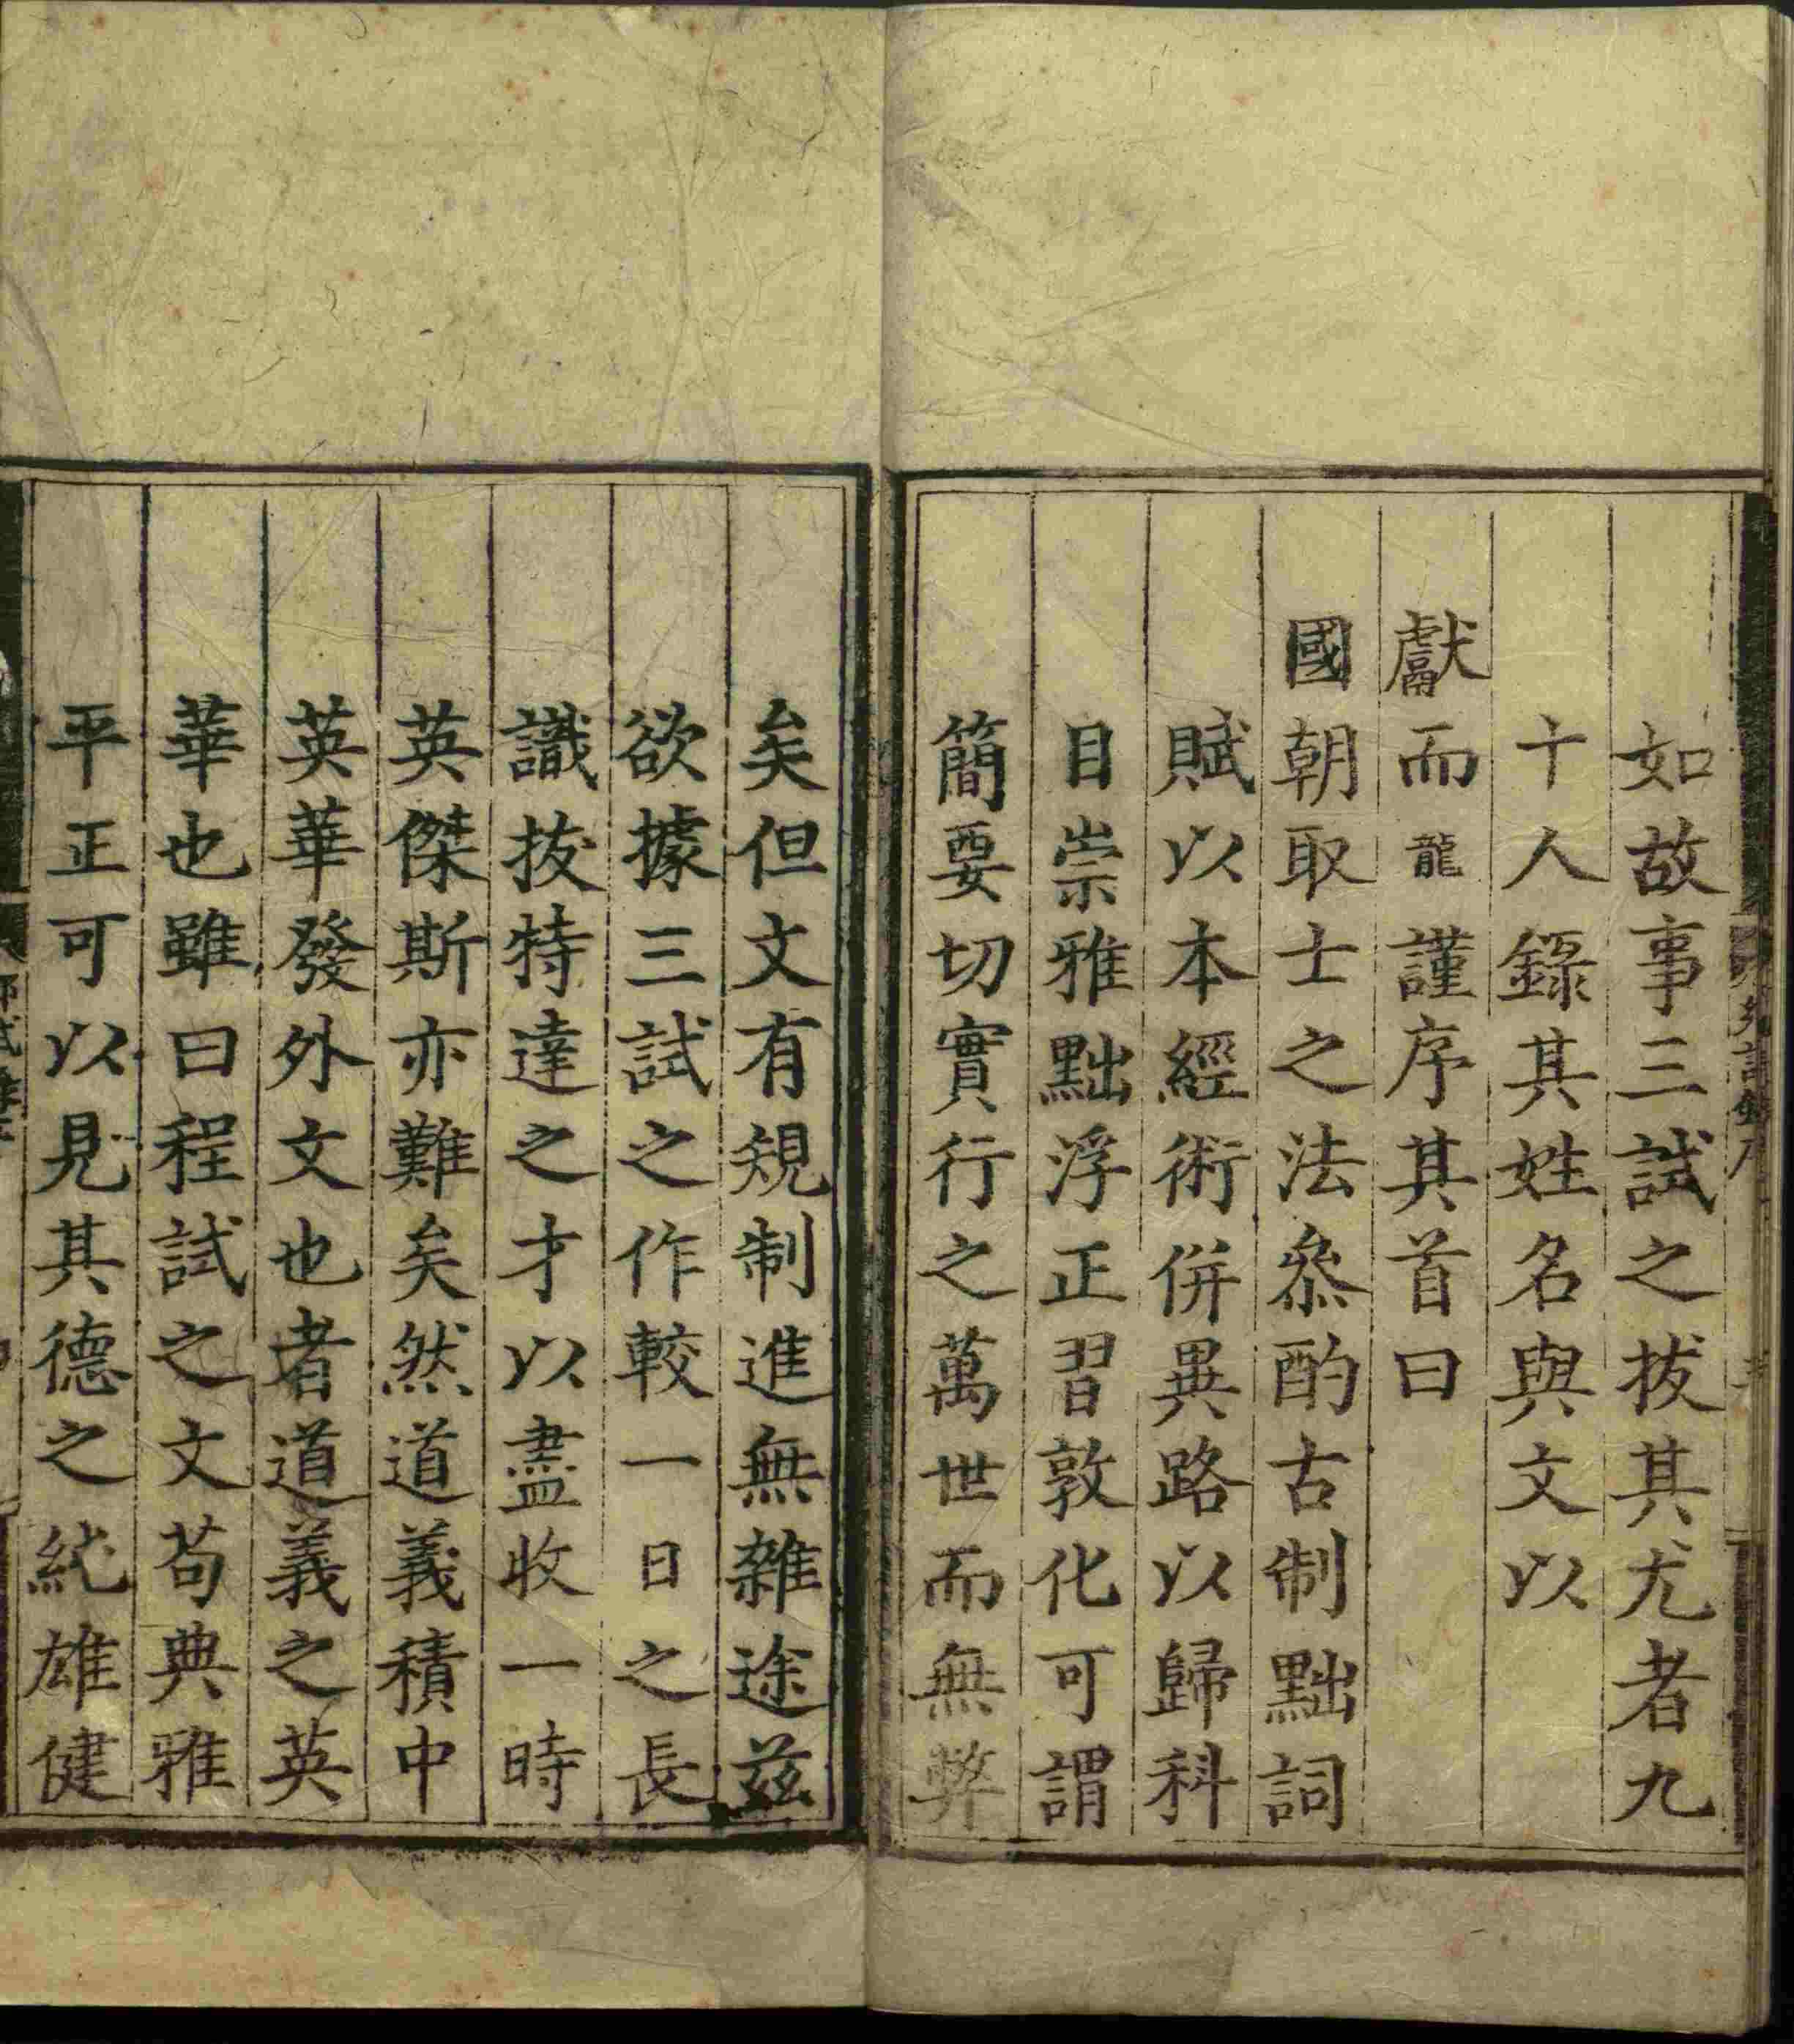 如故事三試之拔其尤者九
十人錄其姓名與文以
獻而龍謹序其首曰
國朝取士之法叅酌古制黜詞
賦以本經術併異路以歸科
目崇雅黜浮正習敦化可謂
簡要切實行之萬世而無弊
矣但文有規制進無雜途茲
欲據三試之作較一日之長
識拔特達之才以盡收一時
英傑斯亦難矣然道義積中
英華發外文也者道義之英
華也雖曰程試之文苟典雅
平正可以見其德之純雄健